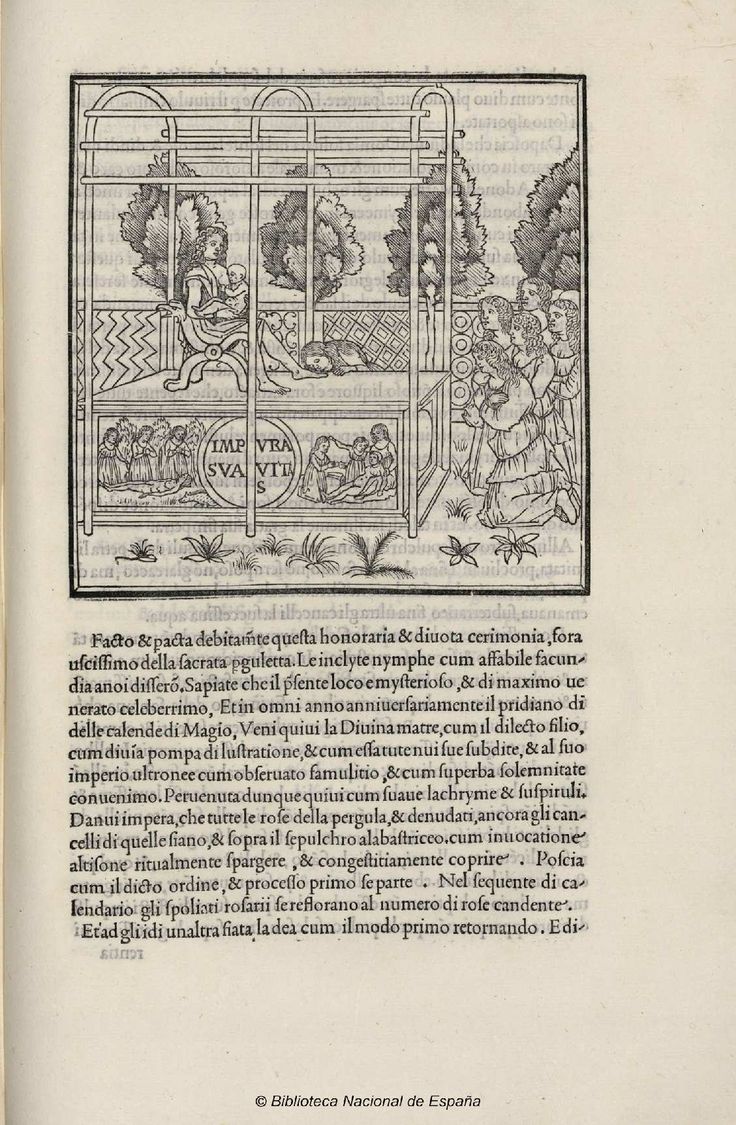 IMPVRA
SVAVITA
S
Facto & pacta debitam̃te questa honoraria & diuota cerimonia, fora
uscissimo della sacrata pguletta. Le inclyte nymphe cum affabile facun-
dia anoi disserõ. Sapiate che il p̃sente loco e mysterioso, & di maximo ue
nerato celeberrimo, Et in omni anno anniuersariamente il pridiano di
delle calende di Magio, Veni quiui la Diuina matre, cum il dilecto filio,
cum diuĩa pompa di lustratione, & cum essa tute nui sue subdite, & al suo
imperio ultronee cum obseruato famulitio, & cum superba solemnitate
conuenimo. Peruenuta dunque quiui cum suaue lachryme & suspiruli.
Da nui impera, che tutte le rose della pergula, & denudati, ancora gli can-
celli di quelle siano, & sopra il sepulchro alabastriceo. cum inuocatione
altisone ritualmente spargere, & congestitiamente coprire. Poscia
cum il dicto ordine, & processo primo se parte. Nel sequente di ca-
lendario gli spoliati rosarii se reflorano al numero di rose candente.
Et ad gli idi unaltra fiata la dea cum il modo primo retornando. E di-
© Biblioteca Nacional de España